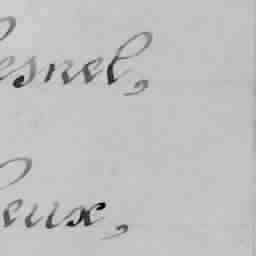 esnel,
eux,